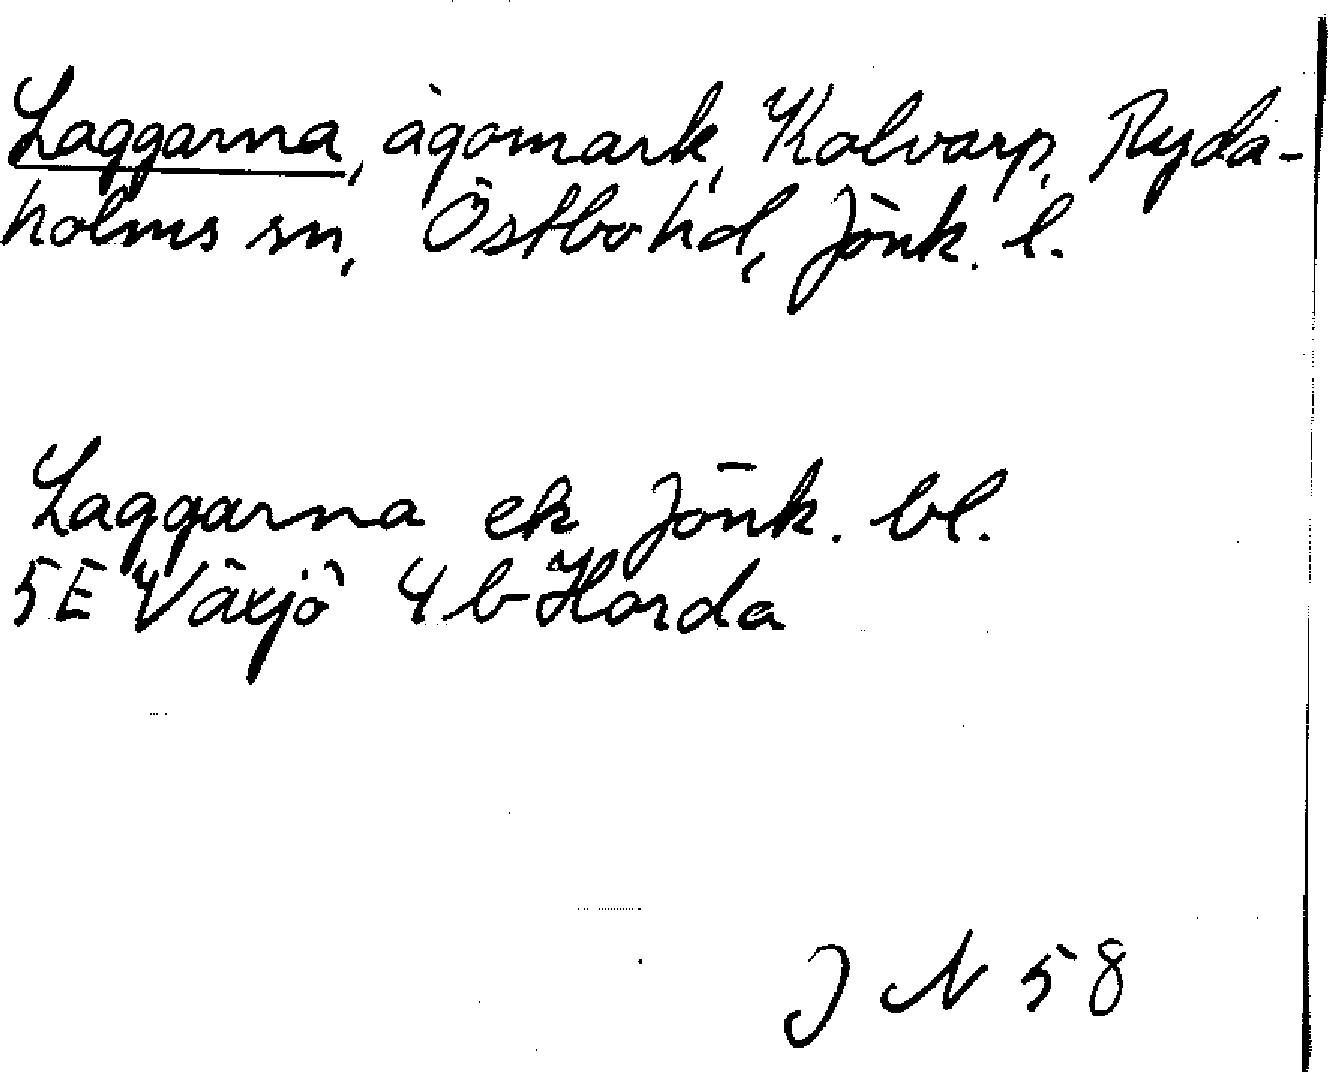 Laggarna, ägomark, Kalvarp, Ryda-
holms sn, Östbo hd, Jönk. l.
Laggarna ek Jönk. bl.
5E Växjö 4 b Horda
J N 58